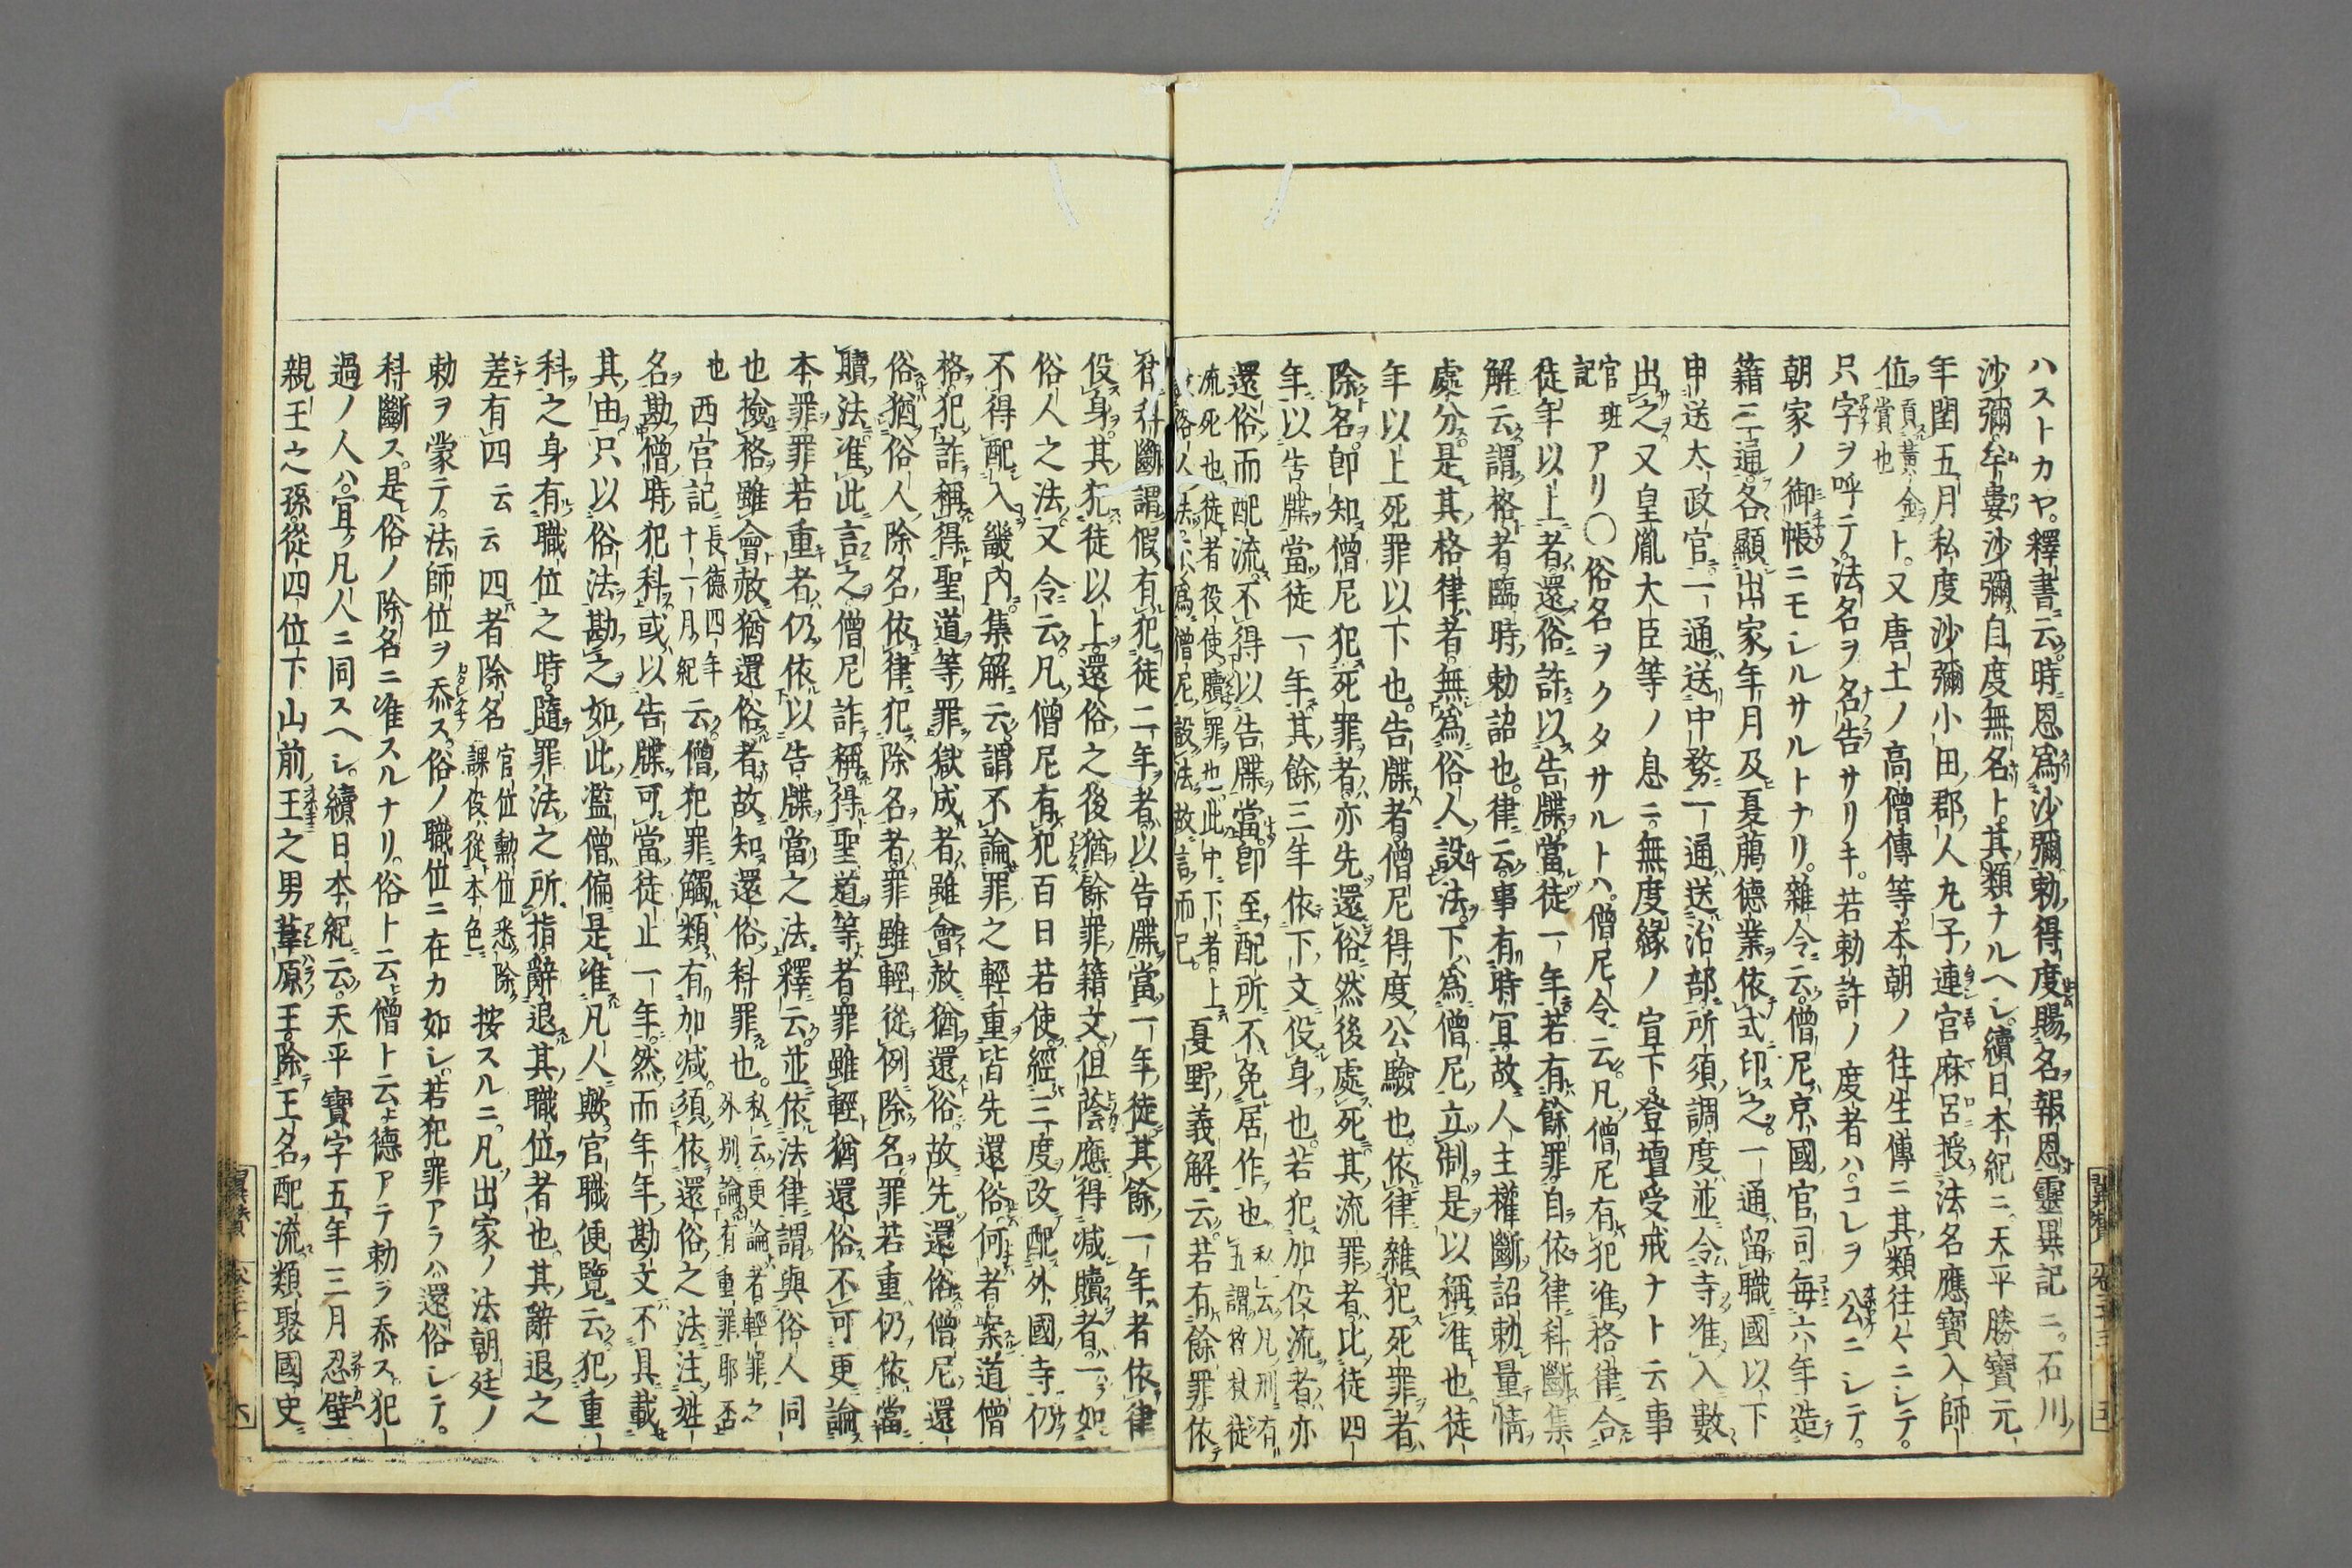 ハストカヤ。釋書云。時恩爲沙彌勅得度賜名報恩靈異記ニ。石川
沙彌。牟婁沙彌自度無名ト。其類ナルヘシ。續日本紀ニ。天平勝寶元
年閏五月私度沙彌小田郡人丸子連宮麻呂授法名應寶入師
位貢黃金賞也ト。又唐土ノ高僧傳等。本朝ノ往生傳ニ其類往々ニシテ。
只字ヲ呼テ。法名ヲ名告サリキ。若勅許ノ度者ハ。コレヲ公ニシテ。
朝家ノ御帳ニモシルサルトナリ。雜令云。僧尼京國官司毎六年造
籍三通。各顯出家年月及夏﨟德業依式印之。一通留職國以下
申送太政官。一通送中務。一通送治部。所須調度並令寺准入數
出之又皇胤大臣等ノ息ニ。無度緣ノ宣下。登壇受戒ナト云事
アリ官班記〇俗名ヲクタサルトハ。僧尼令云。凡僧尼有犯准格律合
徒年以上者。還俗許以告牒當徒一年若有餘罪自依律科斷集
解云。謂格者臨時勅詔也。律云。事有時宜。故人主權斷詔勅量情
處分。是其格律者。無爲俗人設法。下爲僧尼立制。是以稱准也。徒
年以上死罪以下也。告牒者。僧尼得度公驗也。依律雜犯死罪者
除名。卽知僧尼犯死罪者。亦先還俗然後處死。其流罪者。比徒四
年。以告牒當徒一年。其餘三年依下文役身也。若犯加役流者亦
還俗而配流。不得以告牒當。卽至配所不免居作也私云凡刑有五謂笞杖徒
流死也。徒者役使贖罪也。此中下者。上爲俗人法。下爲僧尼設法故言而已。夏野義解云。若有餘罪依
律科斷謂假有犯徒二年者以告牒當一年徒。其餘一年者依律
役身。其犯徒以上。還俗之後猶餘罪籍文。但蔭應得减贖者。一如
俗人之法。又令云。凡僧尼有犯百日若使。經三度改配外國寺仍
不得配入畿內。集解云。謂不論罪之輕重皆先還俗。何者案道僧
格。犯詐稱得聖道等罪獄成者。雖會赦猶還俗。故先還俗僧尼還
俗。猶俗人除名。依律犯除名者。罪雖輕從例除名。罪若重仍依當
贖法准此言之。僧尼詐稱得聖道等者。罪雖輕猶還俗不可更論
本罪罪若重者仍依以告牒當之法。釋云。並依法律謂與俗人同
也。檢格雖會赦猶還俗者。故知還俗科罪也。私云更論者輕罪之外別論有重罪耶否
也　西宮記長德四年十一月紀云。僧犯罪觸類有加减。須依還俗之法注姓
名。勘僧時犯科。或以告牒可當徒止一年。然而年年勘文不具載
其由。只以俗法勘之。如此濫僧偏是准凡人歟。官職便覽云。犯重
科之身有職位之時。隨罪法之所指辭退其職位者也。其辭退之
差有四云云四者除名官位勳位悉除課役從本色按スルニ。凡出家ノ法朝廷ノ
勅ヲ蒙テ。法師位ヲ忝ス。俗ノ職位ニ在カ如シ。若犯罪アラハ還俗シテ。
科斷ス。是俗ノ除名ニ准スルナリ。俗ト云ヒ僧ト云ヒ德アテ勅ヲ忝ス。犯
過ノ人ハ。宜ク凡人ニ同スヘシ。續日本紀云。天平寶字五年三月忍壁
親王之孫從四位下山前王之男葦原王。除王名配流類聚國史